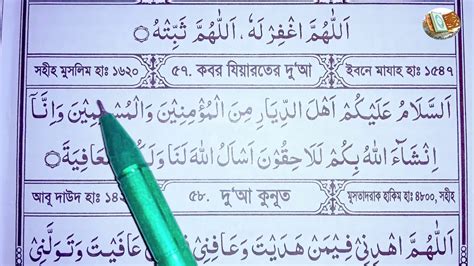 اَللّٰهُمَّ اغْفِرْ لَهُ، اَللّٰهُمَّ ثَبِّتْهُ
সহীহ মুসলিম হাঃ ১৬২০ ৫৭. কবর যিয়ারতের দু'আ ইবনে মাযাহ হাঃ ১৫৪৭
اَلسَّلَامُ عَلَيْكُمْ اَهْلَ الدِّيَارِ مِنَ الْمُؤْمِنِيْنَ وَالْمُسْلِمِيْنَ وَاِنَّاۤ
اِنْشَآءَ اللّٰهُ بِكُمْ لَلَاحِقُوْنَ اَسْاَلُ اللّٰهَ لَنَا الْعَافِيَةَ
আবূ দাউদ হাঃ ৫৮. দু'আ কুনূত মুসতাদরাক হাকিম হাঃ ৪৮০০, সহীহ
اَللّٰهُمَّ اهْدِنِيْ فِيْمَنْ هَدَيْتَ وَعَافِنِيْ عَافَيْتَ وَتَوَلَّنِيْ